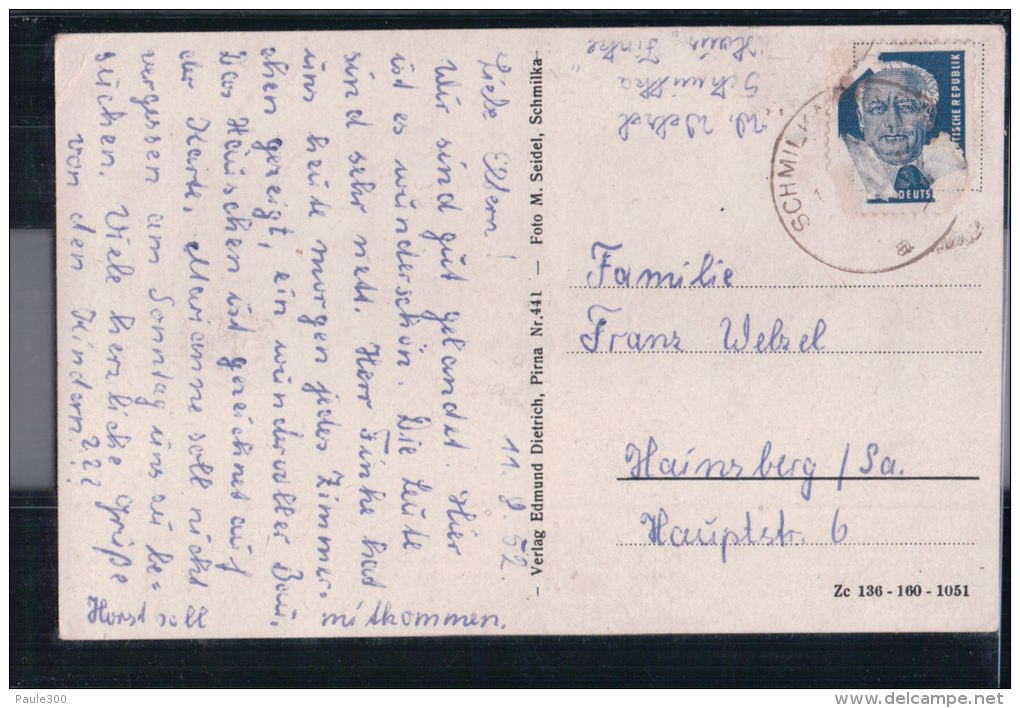 11.8.52.
Liebe Eltern!
Wir sind gut gelandet. Hier
ist es wunderschön. Die Leute
sind sehr nett. Herr Finke hat
uns heute morgen jedes Zimmer=
chen gezeigt, ein wundervoller Bau.
Das Häuschen ist gezeichnet auf
der Karte, Marianne soll nicht
vergessen am Sonntag uns zu be=
suchen. Viele herzliche Grüße
von den Kindern???
Horst soll mitkommen.
- Verlag Edmund Dietrich, Pirna Nr. 441 — Foto M. Seidel, Schmilka-
W. Welzel
Schmilka
"Haus Finke"
SCHMILK
DEUTS
TISCHE REPUBLIK
Familie
Franz Welzel
Hainsberg/Sa.
Hauptstr. 6
Zc 136-160-1051
Paule300
www.delcampe.net